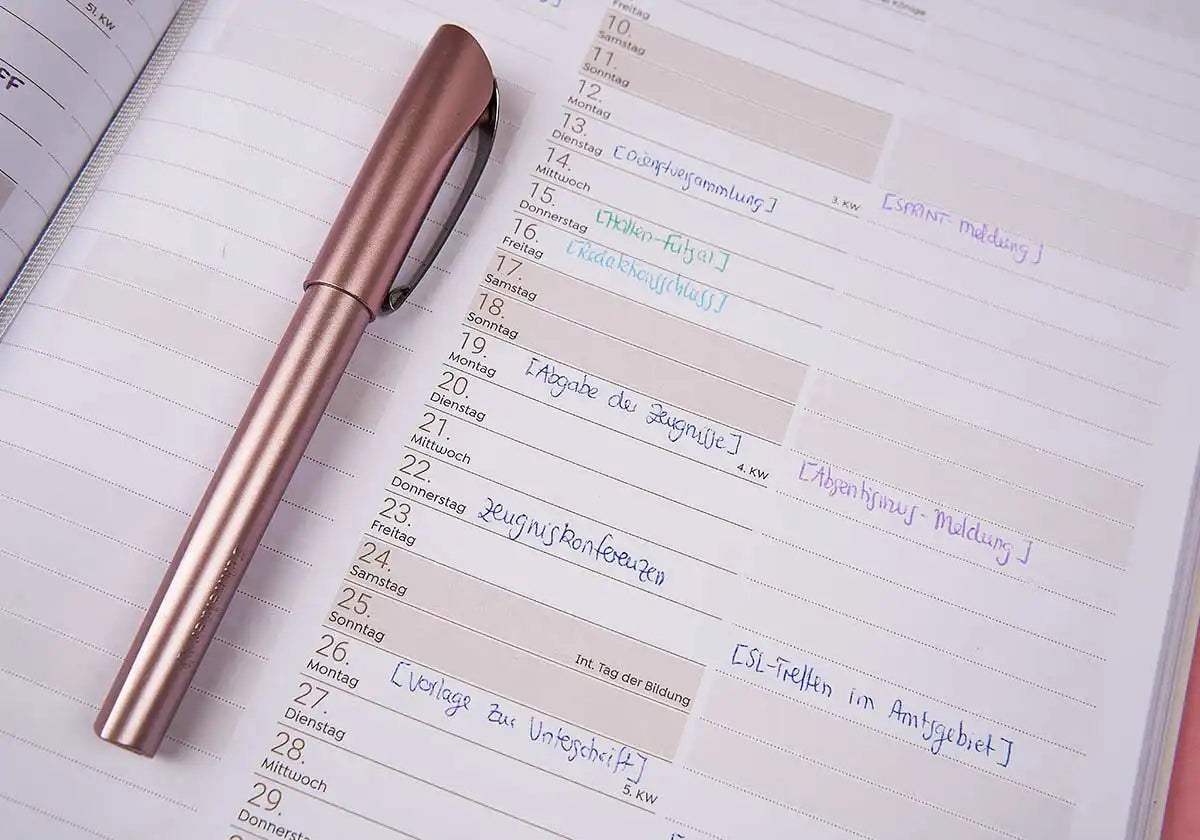 51. KW
FF
Freitag
10.
Samstag
11.
Sonntag
12.
Montag 3. KW [SPRINT-meldung]
13.
Dienstag [Dienstversammlung]
14.
Mittwoch
15.
Donnerstag [Hallen-Futsal]
16.
Freitag [Redaktionsschluss]
17.
Samstag
18.
Sonntag
19.
Montag [Abgabe der Zeugnisse] 4. KW [Absentismus-Meldung]
20.
Dienstag
21.
Mittwoch
22.
Donnerstag Zeugniskonferenzen
23.
Freitag [SL-Treffen im Amtsgebiet]
24.
Samstag Int. Tag der Bildung
25.
Sonntag
26.
Montag [Vorlage zur Unterschrift] 5. KW
27.
Dienstag
28.
Mittwoch
29.
Donnerstag